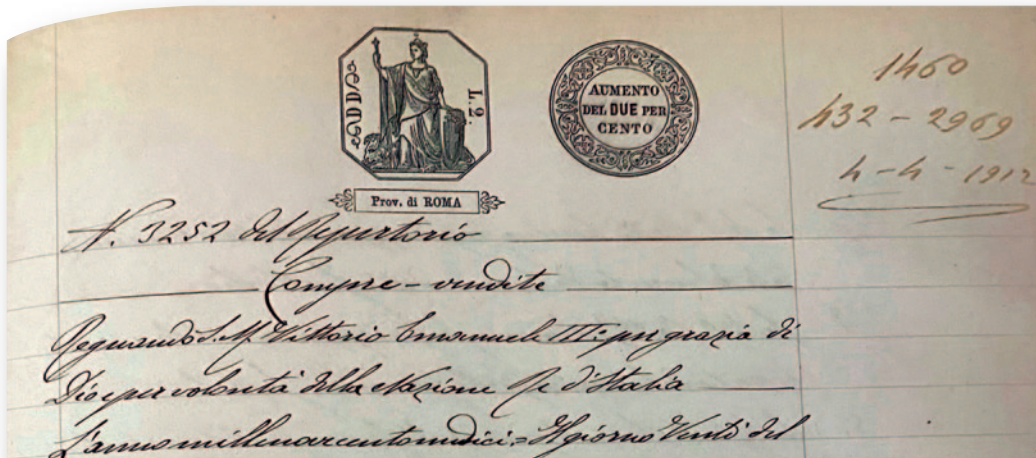 L. 2.
AUMENTO
DEL DUE PER
CENTO
Prov. di ROMA
1460
432 - 2969
4 - 4 - 1912
N. 3252 del Repertorio
Compre - vendite
Regnando S. M. Vittorio Emanuele III: per grazia di
Dio e per volontà della Nazione Re d'Italia
L'anno millenovecentoundici = Il giorno Venti del